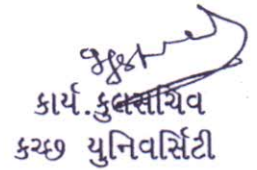 કાર્ય.કુલસચિવ
કચ્છ યુનિવર્સિટી